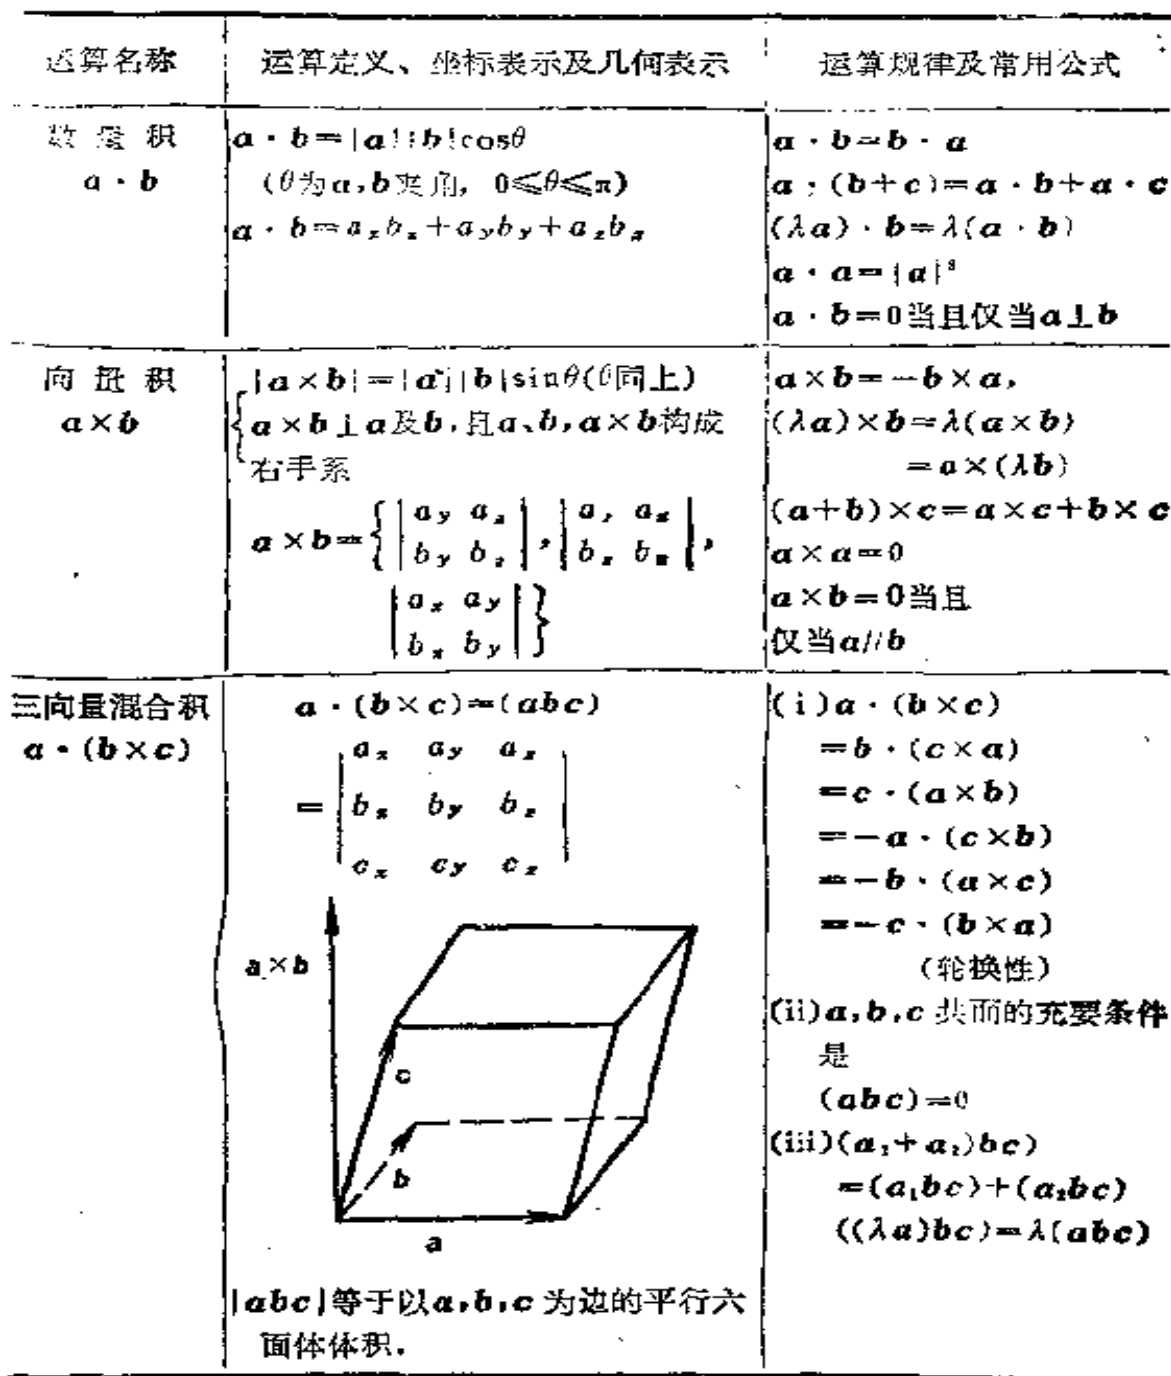 运算名称 运算定义、坐标表示及几何表示 运算规律及常用公式
数量积
a · b
a · b=|a||b|cosθ
(θ为a,b夹角, 0≤θ≤π)
a · b=a_x b_x+a_y b_y+a_z b_z
a · b=b · a
a · (b+c)=a · b+a · c
(λa) · b=λ(a · b)
a · a=|a|²
a · b=0当且仅当a⊥b
向量积
a×b
|a×b|=|a||b|sinθ(θ同上)
a×b⊥a及b,且a、b,a×b构成
右手系
a×b={|a_y a_z; b_y b_z|,|a_z a_x; b_z b_x|,
|a_x a_y; b_x b_y|}
a×b=-b×a,
(λa)×b=λ(a×b)
=a×(λb)
(a+b)×c=a×c+b×c
a×a=0
a×b=0当且
仅当a//b
三向量混合积
a · (b×c)
a · (b×c)=(abc)
a_x a_y a_z
= b_x b_y b_z
c_x c_y c_z
a×b
c
b
a
|abc|等于以a,b,c为边的平行六
面体体积.
(i)a · (b×c)
=b · (c×a)
=c · (a×b)
=-a · (c×b)
=-b · (a×c)
=-c · (b×a)
(轮换性)
(ii)a,b,c共面的充要条件
是
(abc)=0
(iii)(a₁+a₂)bc)
=(a₁bc)+(a₂bc)
((λa)bc)=λ(abc)